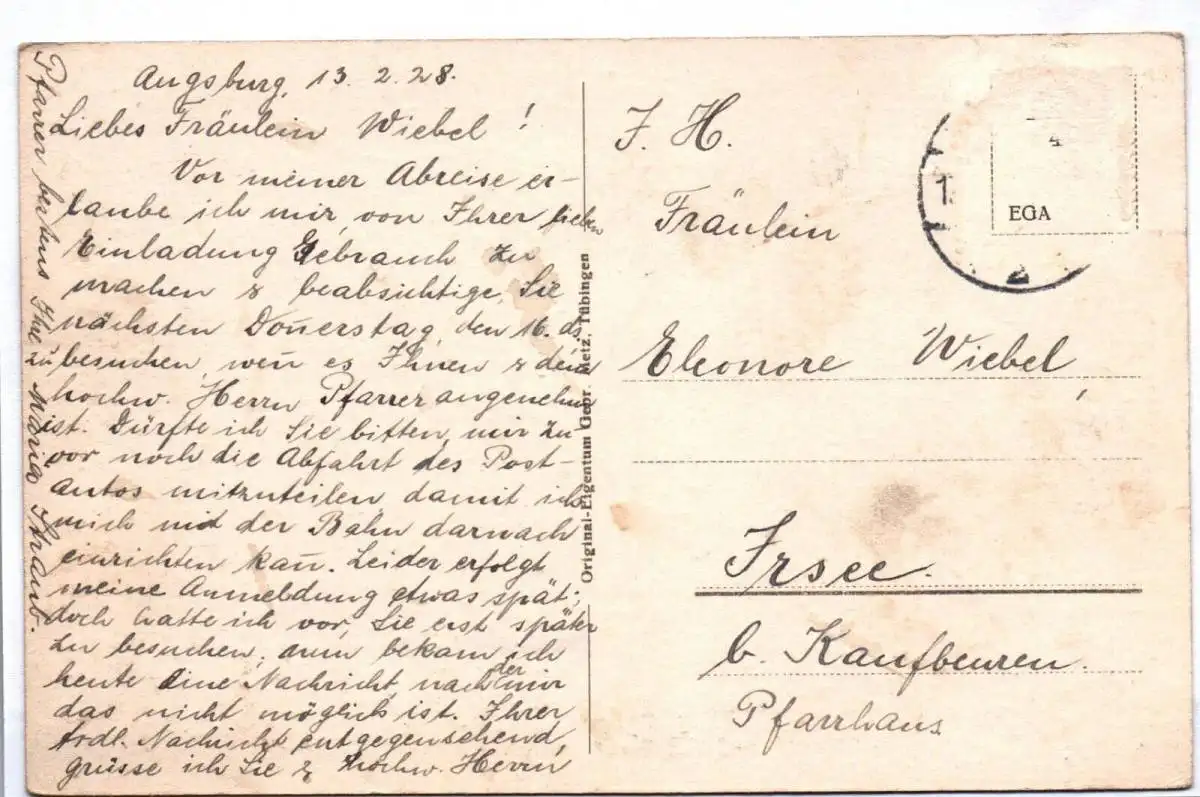 Augsburg, 13. 2. 28.
Liebes Fräulein Wiebel !
Vor meiner Abreise er-
laube ich mir, von Ihrer lieben
Einladung Gebrauch zu
machen & beabsichtige, Sie
nächsten Don̄erstag, den 16. ds.
besuchen, wen̄ es Ihnen & dem
hochw. Herrn Pfarrer angenehm
ist. Dürfte ich Sie bitten, mir zu-
vor noch die Abfahrt des Post-
autos mitzuteilen damit ich
mich mit der Bahn darnach
einrichten kan̄. Leider erfolgt
meine Anmeldung etwas spät;
doch hatte ich vor, Sie erst später
zu besuchen, nun bekam ich
heute eine Nachricht, nach der mir
das nicht möglich ist. Ihrer
frdl. Nachricht entgegensehend,
grüsse ich Sie & hochw. Herrn
Pfarrer bestens Ihre Maria Straub.
zu
Original-Eigentum Gebr. Metz, Tübingen
J. H.
Fräulein
Eleonore Wiebel,
Irsee.
b. Kaufbeuren.
Pfarrhaus
1
2
4
EGA